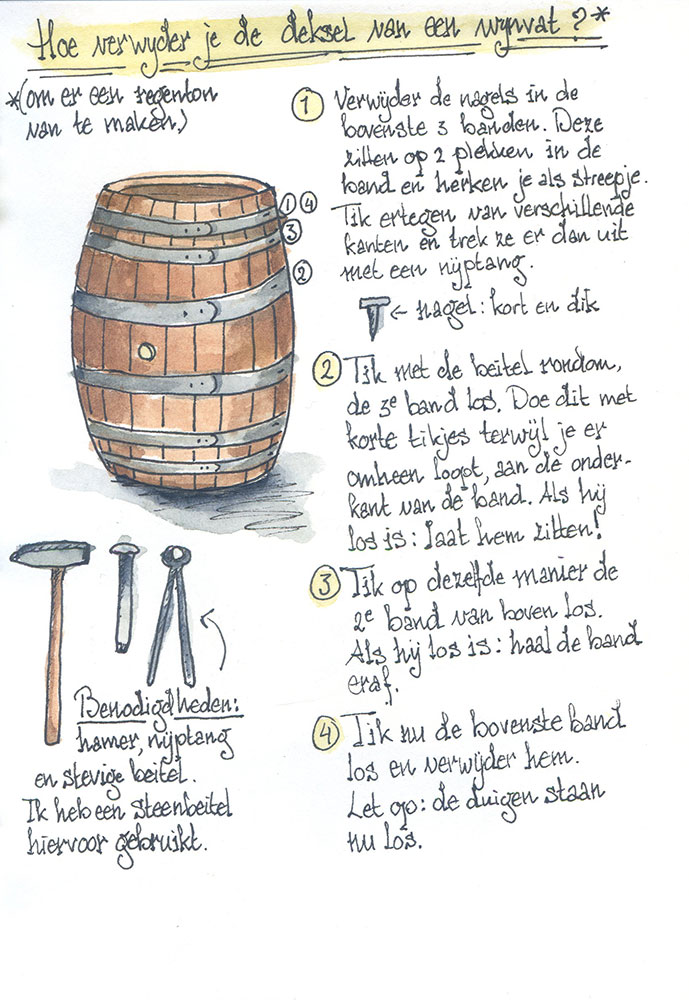 Hoe verwijder je de deksel van een wijnvat?*
*(om er een regenton
van te maken)
1 4
3
2
1 Verwijder de nagels in de
bovenste 3 banden. Deze
zitten op 2 plekken in de
band en herken je als streepje.
Tik ertegen van verschillende
kanten en trek ze er dan uit
met een nijptang.
← nagel: kort en dik
2 Tik met de beitel rondom,
de 3e band los. Doe dit met
korte tikjes terwijl je er
omheen loopt, aan de onder-
kant van de band. Als hij
los is: laat hem zitten!
3 Tik op dezelfde manier de
2e band van boven los.
Als hij los is: haal de band
eraf.
4 Tik nu de bovenste band
los en verwijder hem.
Let op: de duigen staan
nu los.
Benodigdheden:
hamer, nijptang
en stevige beitel.
Ik heb een steenbeitel
hiervoor gebruikt.